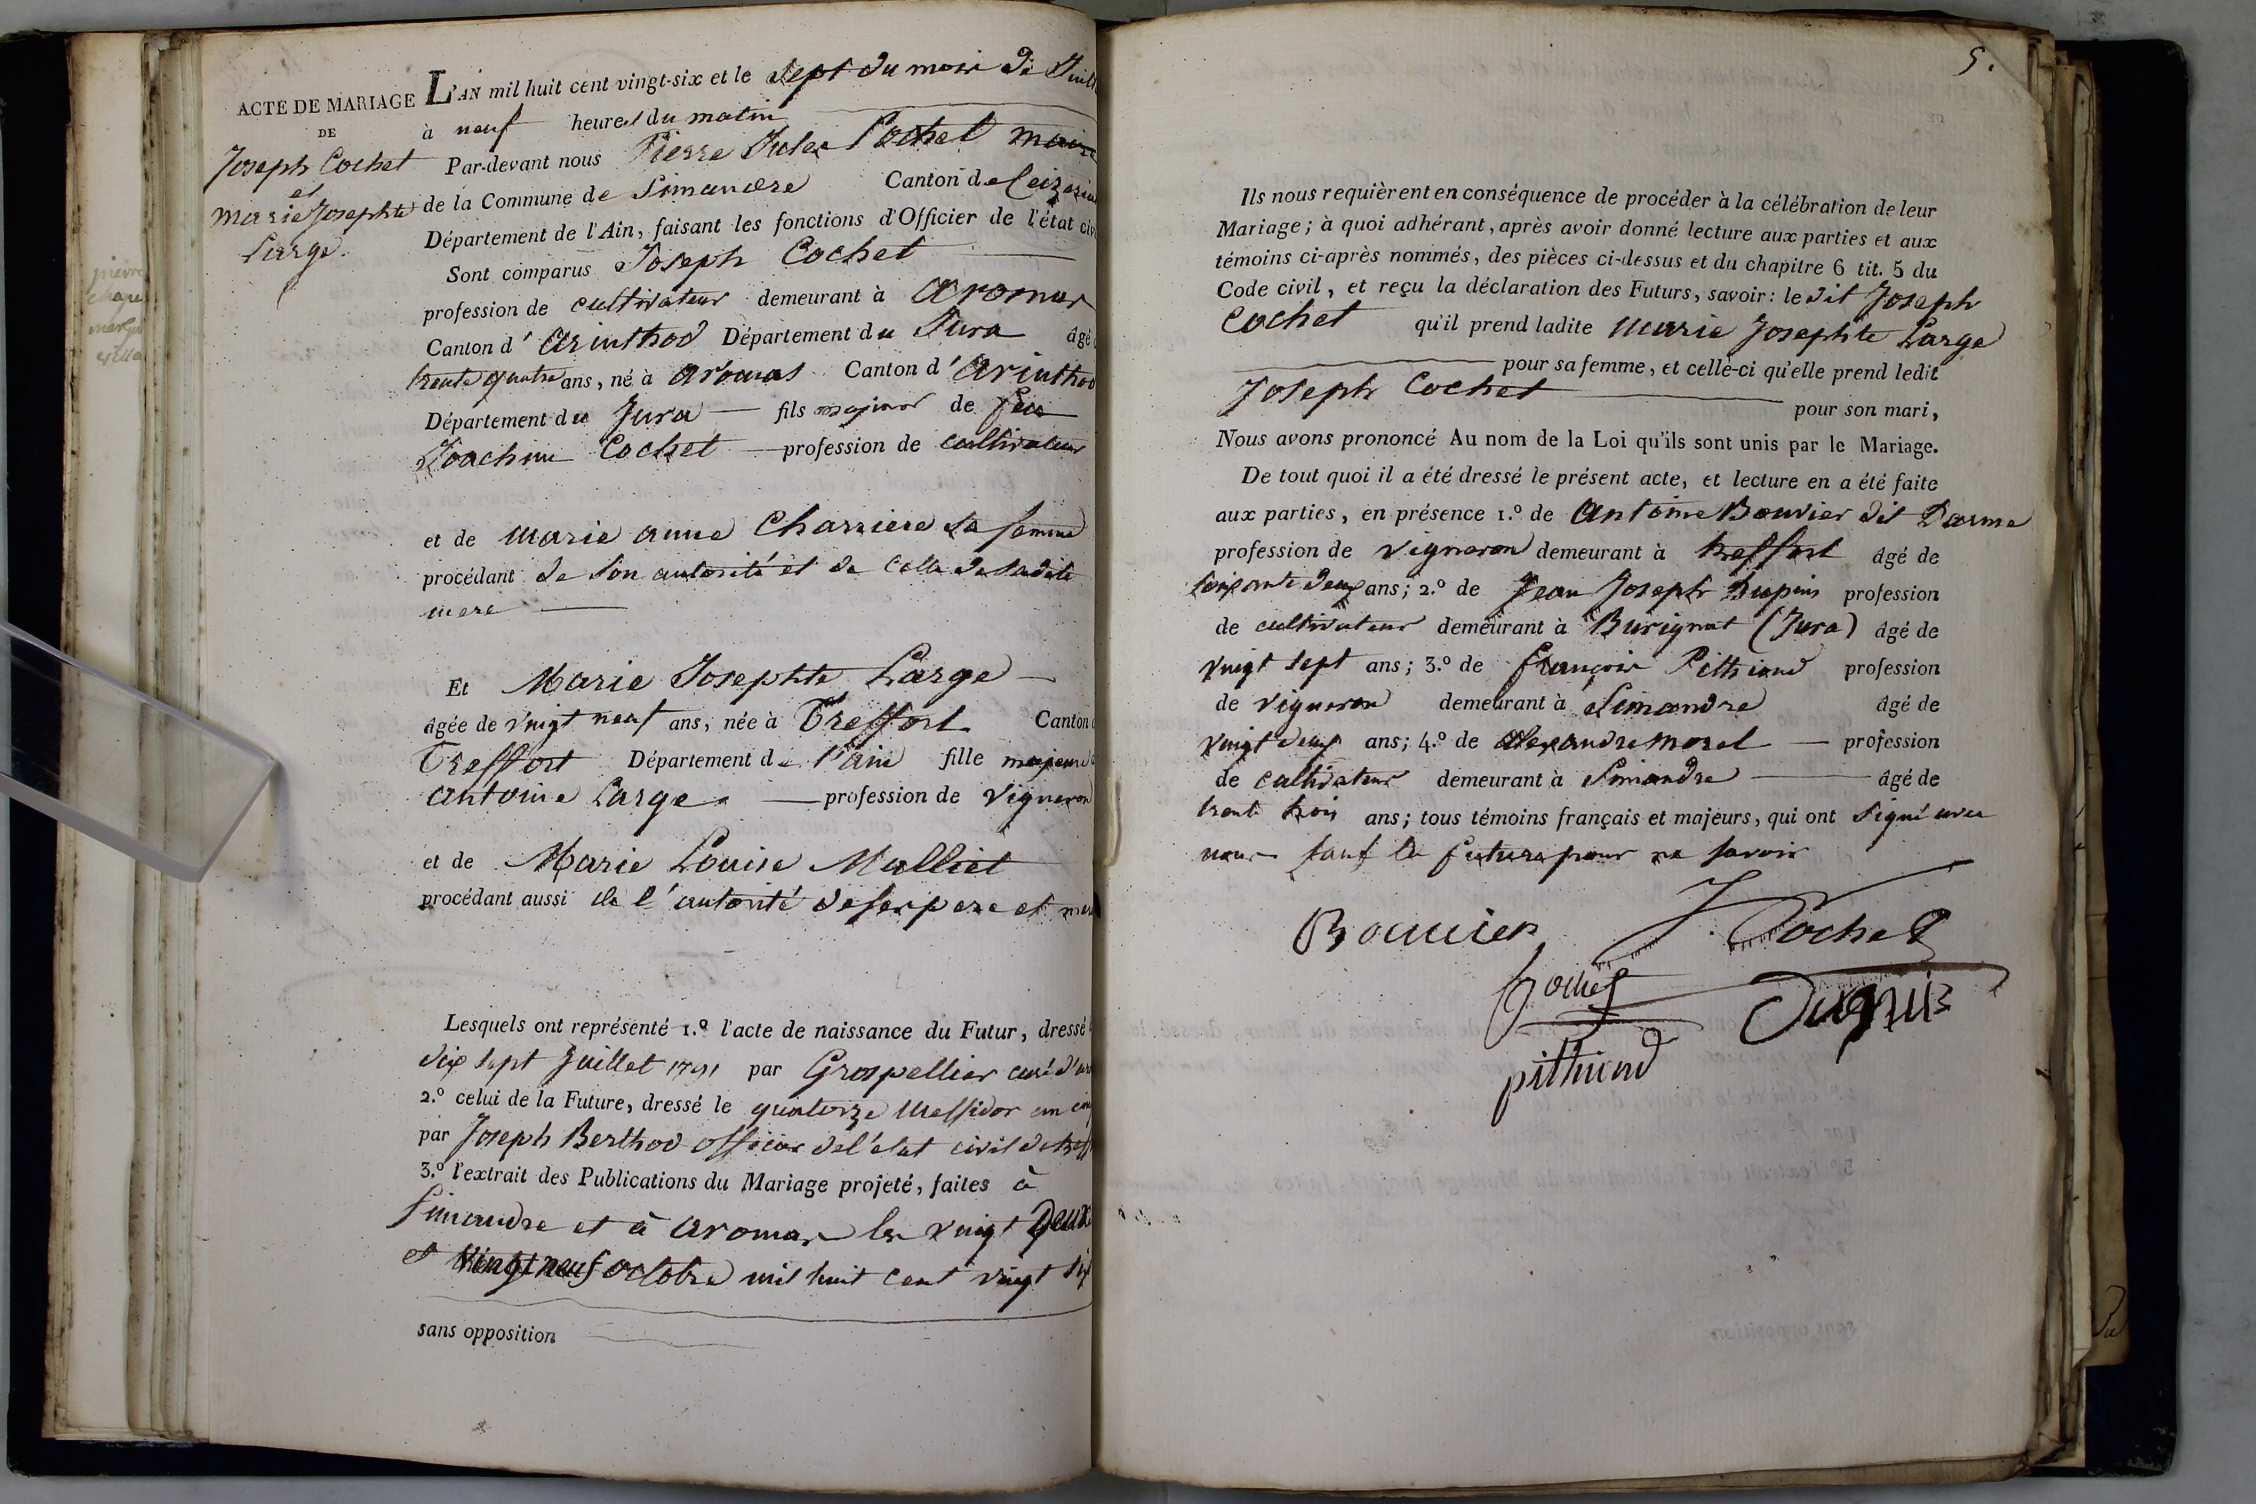 ACTE DE MARIAGE
DE
Joseph Cochet
et
Marie Josephte
Large.
L'AN mil huit cent vingt-six et le sept du mois de
à neuf heures du matin
Par-devant nous Pierre Jules Cochet maire
de la Commune de Simandre Canton de Ceizeria
Département de l'Ain, faisant les fonctions d'Officier de l'état civ
Sont comparus Joseph Cochet
profession de cultivateur demeurant à aromas
Canton d'arinthod Département du Jura âgé
trente quatre ans, né à aromas Canton d'arinthod
Département du Jura — fils majeur de feu
Joachim Cochet — profession de cultivateur
et de marie anne Charriere sa femme
procédant de son autorité et de celle de sadite
mere —
Et Marie Josephte Large —
âgée de vingt neuf ans, née à Treffort Canton
Treffort Département de l'ain fille majeure
antoine Large — profession de vigneron
et de Marie Louise Malliet
procédant aussi de l'autorité de ses pere et mer
Lesquels ont représenté 1.º l'acte de naissance du Futur, dressé
dix sept Juillet 1791 par Grospellier curé
2.º celui de la Future, dressé le quatorze Messidor an
par Joseph Berthod officier de l'état civil de
3.º l'extrait des Publications du Mariage projeté, faites à
Simandre et à aromas les vingt Deux
et vingt neuf octobre mil huit cent vingt six
sans opposition
5.
Ils nous requièrent en conséquence de procéder à la célébration de leur
Mariage; à quoi adhérant, après avoir donné lecture aux parties et aux
témoins ci-après nommés, des pièces ci-dessus et du chapitre 6 tit. 5 du
Code civil, et reçu la déclaration des Futurs, savoir: le dit Joseph
Cochet qu'il prend ladite Marie Josephte Large
pour sa femme, et celle-ci qu'elle prend ledit
Joseph Cochet pour son mari,
Nous avons prononcé Au nom de la Loi qu'ils sont unis par le Mariage.
De tout quoi il a été dressé le présent acte, et lecture en a été faite
aux parties, en présence 1.º de Antoine Bouvier dit
profession de vigneron demeurant à treffort âgé de
soixante deux ans; 2.º de Jean Joseph Dupuis profession
de cultivateur demeurant à Burignat (Jura) âgé de
vingt sept ans; 3.º de françois Pithioud profession
de vigneron demeurant à Simandre âgé de
vingt deux ans; 4.º de alexandre morel — profession
de cultivateur demeurant à Simandre — âgé de
trente trois ans; tous témoins français et majeurs, qui ont signé avec
nous sauf la future pour ne savoir
Bouvier
J Cochet
Dupuis
pithioud